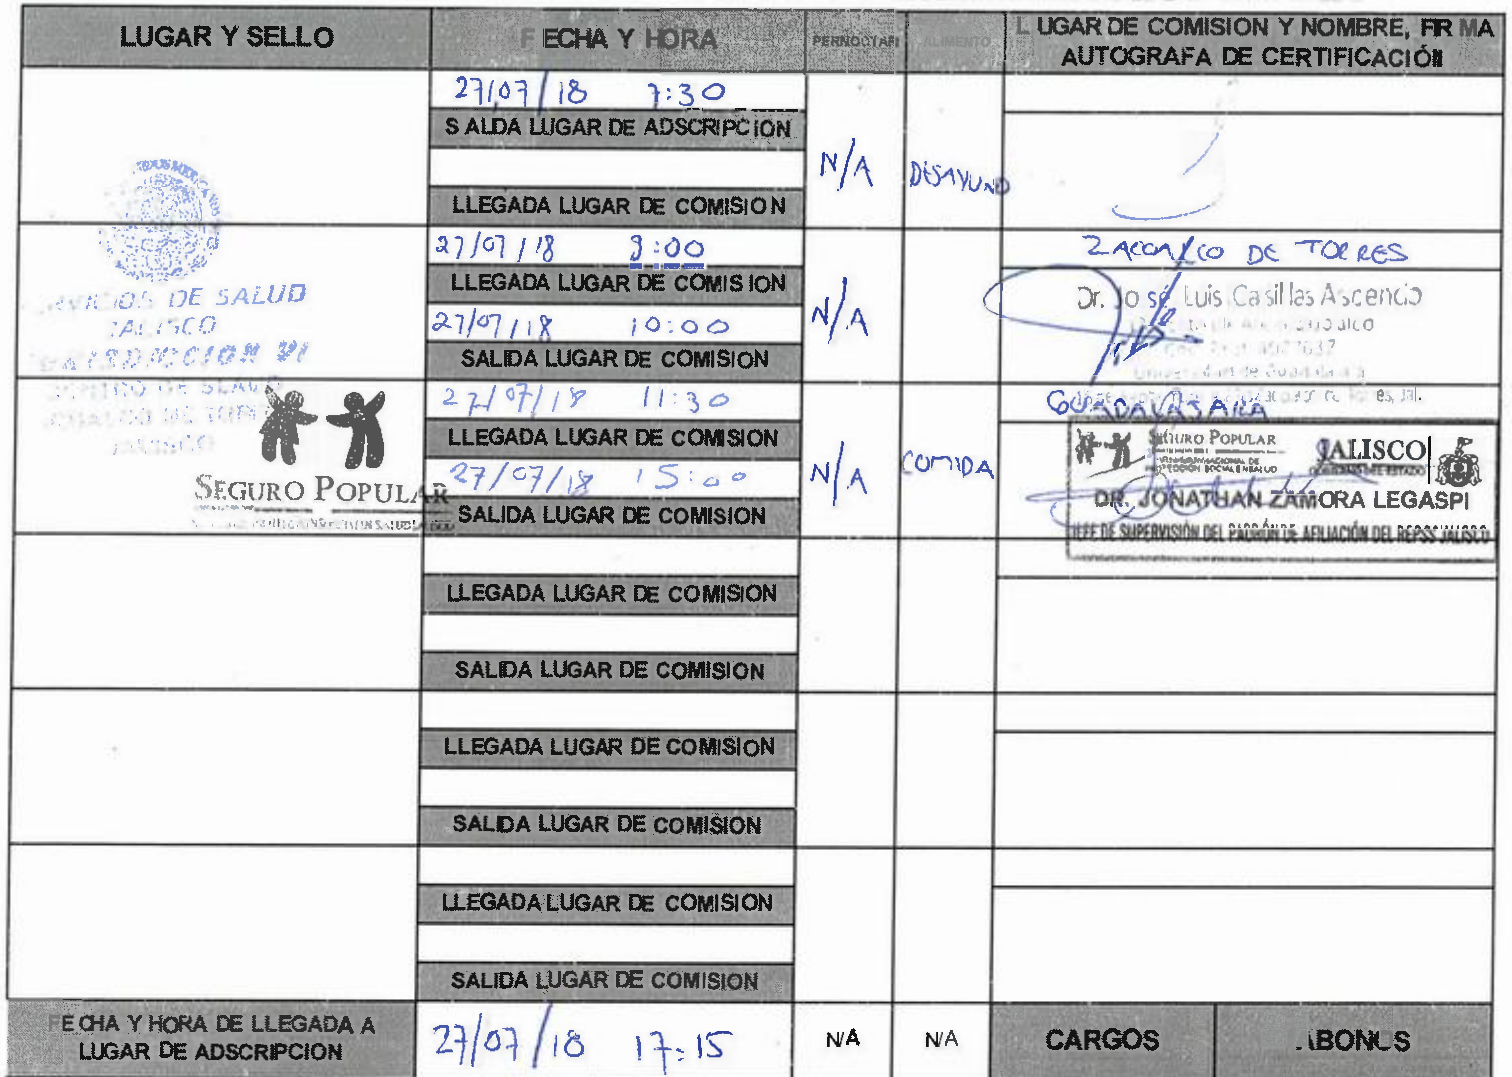 LUGAR Y SELLO
FECHA Y HORA
PERNOCTAR
ALIMENTO
LUGAR DE COMISION Y NOMBRE, FIRMA
AUTOGRAFA DE CERTIFICACIÓN
27/07/18 7:30
SALIDA LUGAR DE ADSCRIPCION
LLEGADA LUGAR DE COMISION
N/A
DESAYUNO
27/07/18 9:00
LLEGADA LUGAR DE COMISION
27/07/18 10:00
SALIDA LUGAR DE COMISION
N/A
ZACOALCO DE TORRES
Dr. José Luis Casillas Ascencio
DE SALUD
JALISCO
27/07/18 11:30
LLEGADA LUGAR DE COMISION
27/07/18 15:00
SALIDA LUGAR DE COMISION
N/A
COMIDA
GUADALAJARA
SEGURO POPULAR
SEGURO POPULAR
JALISCO
GOBIERNO DEL ESTADO
DR. JONATHAN ZAMORA LEGASPI
JEFE DE SUPERVISIÓN DEL PADRÓN DE AFILIACIÓN DEL REPSS JALISCO
LLEGADA LUGAR DE COMISION
SALIDA LUGAR DE COMISION
LLEGADA LUGAR DE COMISION
SALIDA LUGAR DE COMISION
LLEGADA LUGAR DE COMISION
SALIDA LUGAR DE COMISION
FECHA Y HORA DE LLEGADA A
LUGAR DE ADSCRIPCION
27/07/18 17:15
N/A
N/A
CARGOS
ABONOS